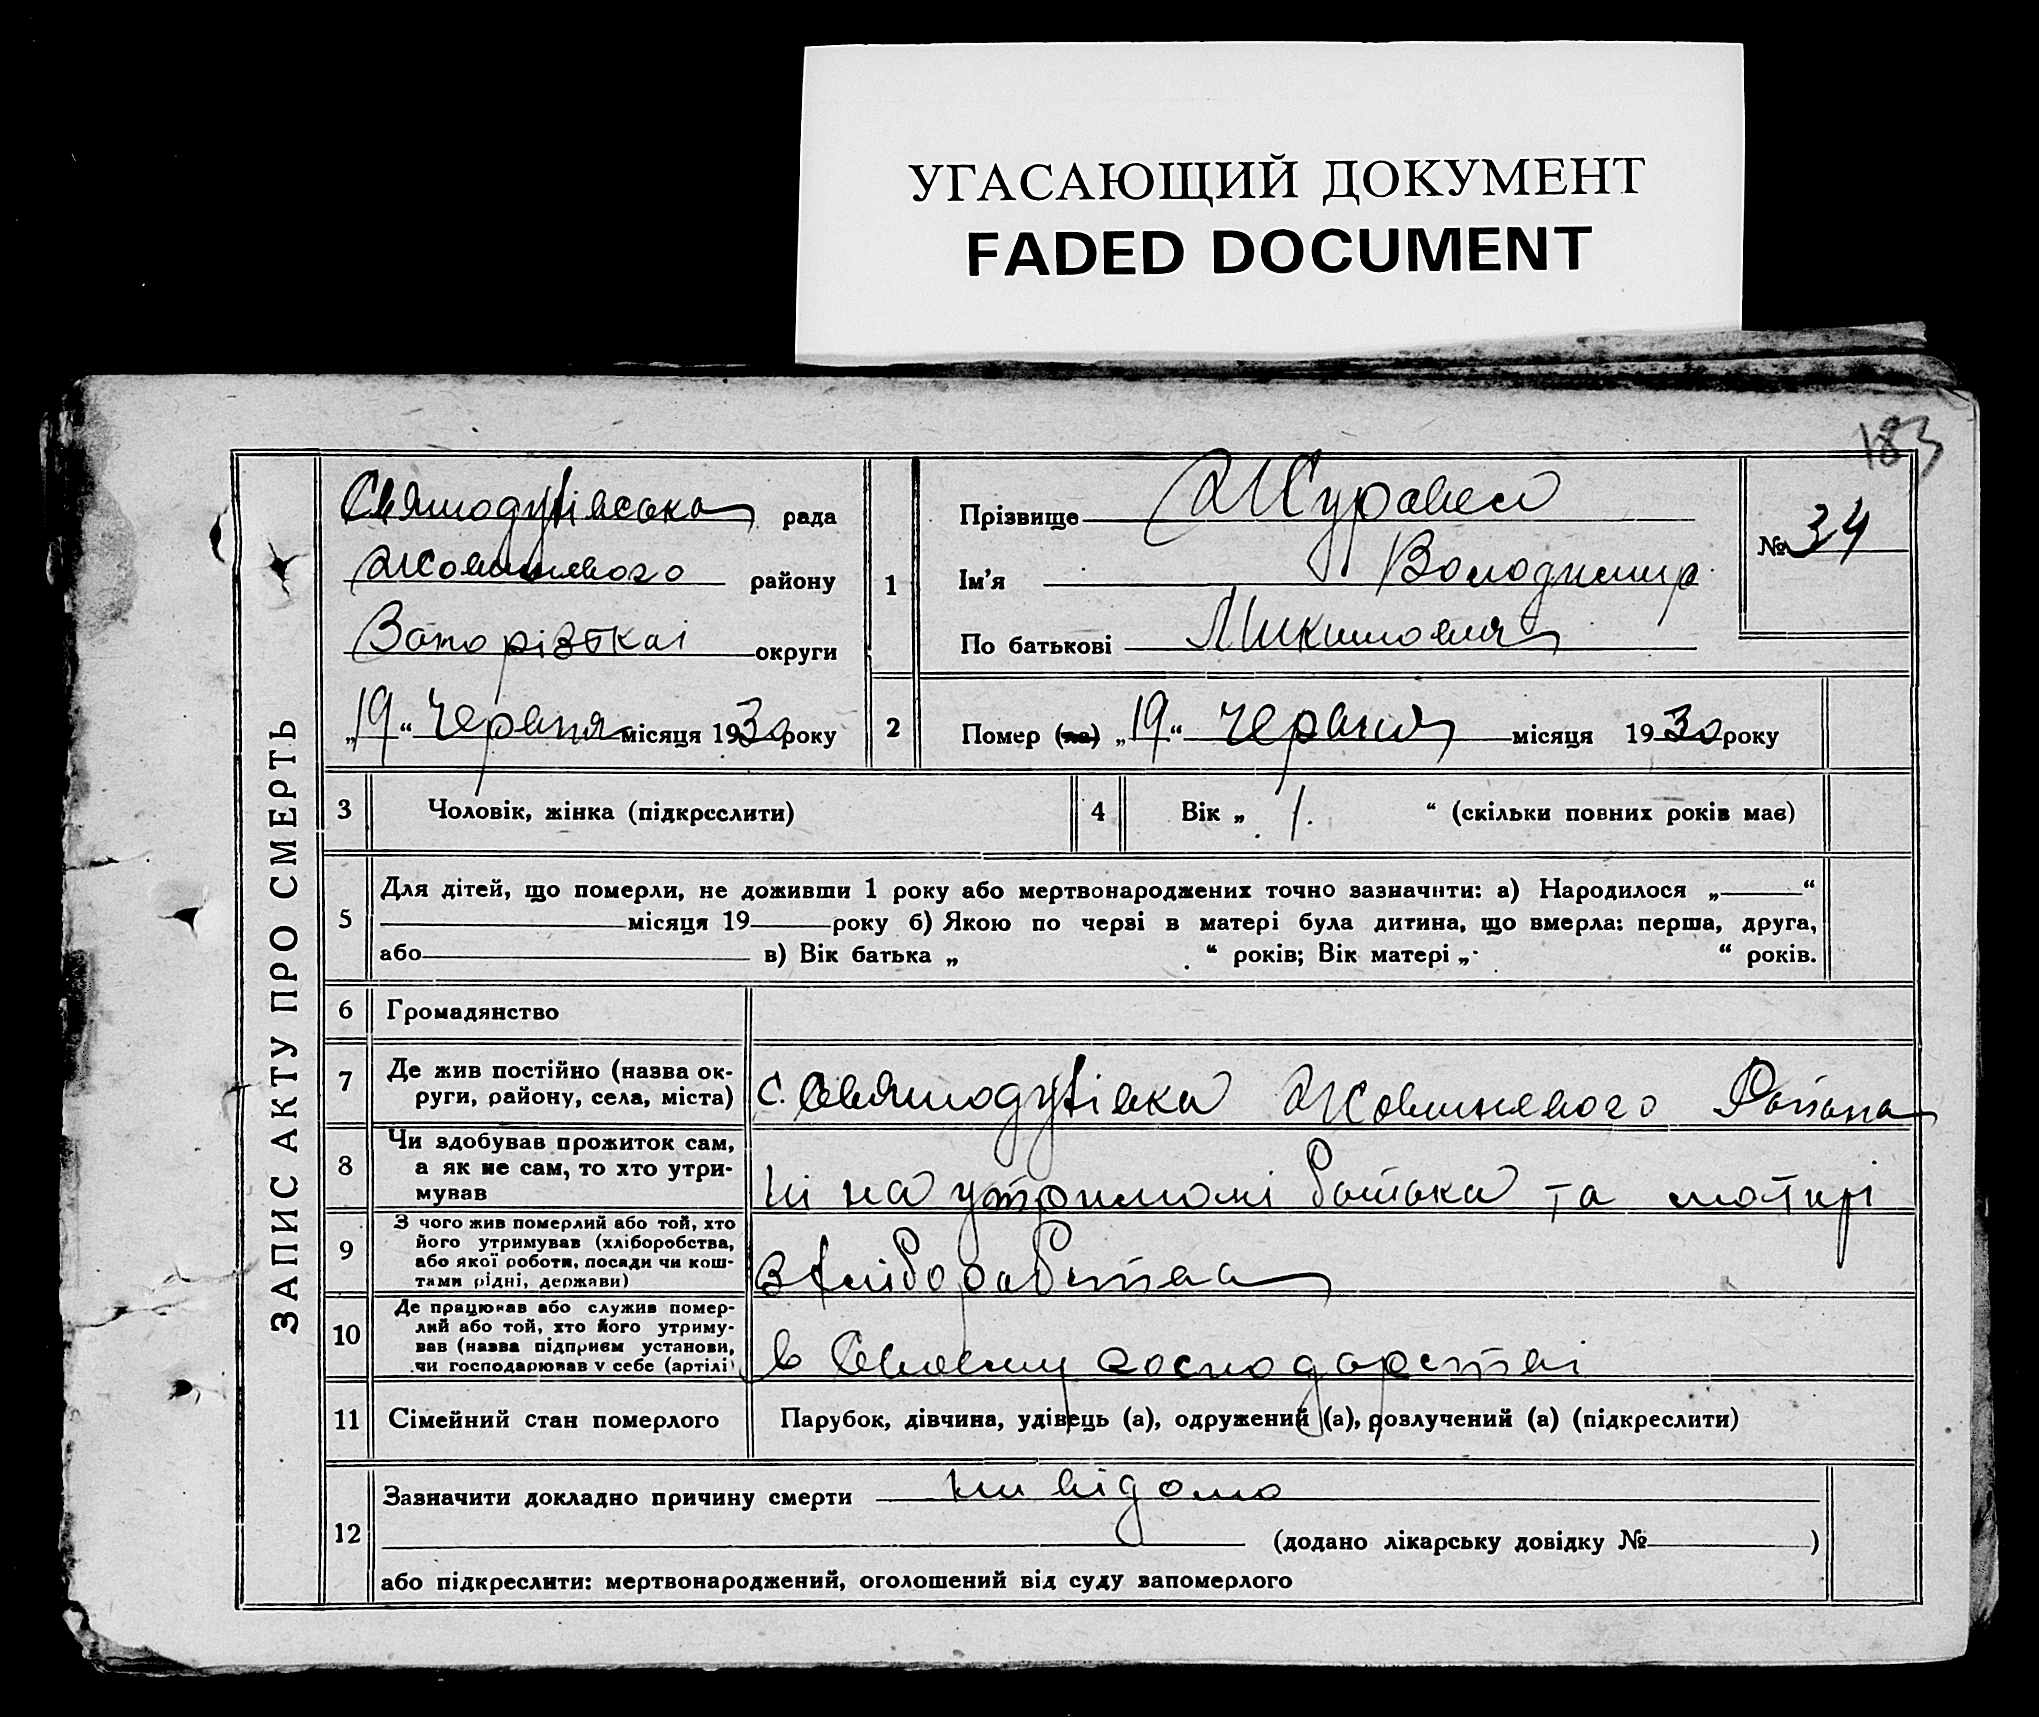 УГАСАЮЩИЙ ДОКУМЕНТ
FADED DOCUMENT
183
ЗАПИС АКТУ ПРО СМЕРТЬ
рада
району
округи
„19“ Червня місяця 1930 року
1
Прізвище Журавель
Ім’я Володимир
По батькові
№ 34
2
Помер (ла) „19“ Червня місяця 1930 року
3
Чоловік, жінка (підкреслити)
4
Вік „ 1. “ (скільки повних років має)
5
Для дітей, що померли, не доживши 1 року або мертвонароджених точно зазначити: а) Народилося „ “
місяця 19 року б) Якою по черзі в матері була дитина, що вмерла: перша, друга,
або в) Вік батька „ “ років; Вік матері „ “ років.
6
Громадянство
7
Де жив постійно (назва ок-
руги, району, села, міста)
с. Жовтневого Района
8
Чи здобував прожиток сам,
а як не сам, то хто утри-
мував
ні на батька та
9
З чого жив померлий або той, хто
його утримував (хліборобства,
або якої роботи, посади чи кош-
тами рідні, держави)
з
10
Де працював або служив помер-
лий або той, хто його утриму-
вав (назва підприєм установи,
чи господарював у себе (артілі)
в господарстві
11
Сімейний стан померлого
Парубок, дівчина, удівець (а), одружений (а), розлучений (а) (підкреслити)
12
Зазначити докладно причину смерти ни відомо
(додано лікарську довідку № )
або підкреслити: мертвонароджений, оголошений від суду запомерлого